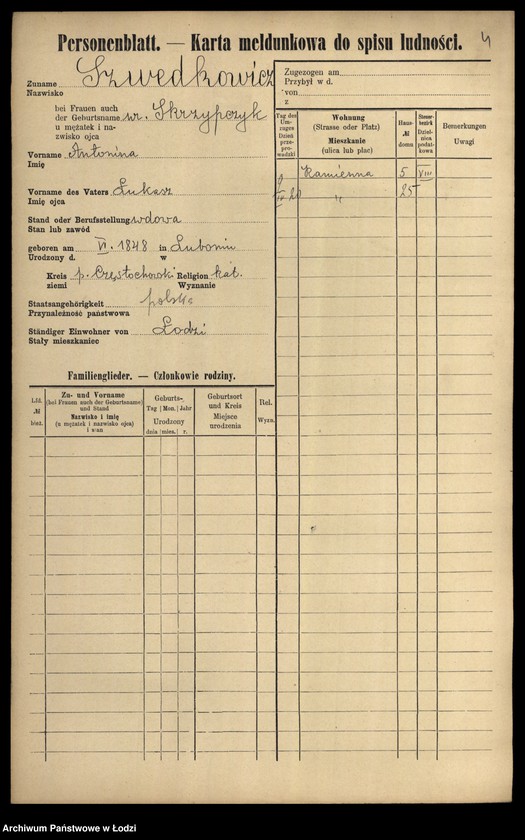 Personenblatt. — Karta meldunkowa do spisu ludności.
4
Zuname Szwedkowicz
Nazwisko
bei Frauen auch
der Geburtsname w. Skrzypczyk
u mężatek i na-
zwisko ojca
Vorname Antonina
Imię
Vorname des Vaters Łukasz
Imię ojca
Stand oder Berufsstellung wdowa
Stan lub zawód
geboren am VI. 1848 in Lubomiu
Urodzony d. w
Kreis p. Częstochowski Religion kat.
ziemi Wyznanie
Staatsangehörigkeit polska
Przynależność państwowa
Ständiger Einwohner von Łodzi
Stały mieszkaniec
Familienglieder. — Członkowie rodziny.
Lfd. № bież.
Zu- und Vorname
(bei Frauen auch der Geburtsname)
und Stand
Nazwisko i imię
(u mężatek i nazwisko ojca)
i stan
Geburts-
Tag | Mon. | Jahr
Urodzony
dnia | mies. | r.
Geburtsort
und Kreis
Miejsce
urodzenia
Rel.
Wyzn.
Zugezogen am
Przybył w d.
von
z
Tag des
Um-
zuges
Dzień
prze-
prowadzki
Wohnung
(Strasse oder Platz)
Mieszkanie
(ulica lub plac)
Haus-
№
domu
Steuer-
bezirk
Dziel-
nica
podat-
kowa
Bemerkungen
Uwagi
Kamienna 5 VIII
9/IV 20 " 25
Archiwum Państwowe w Łodzi